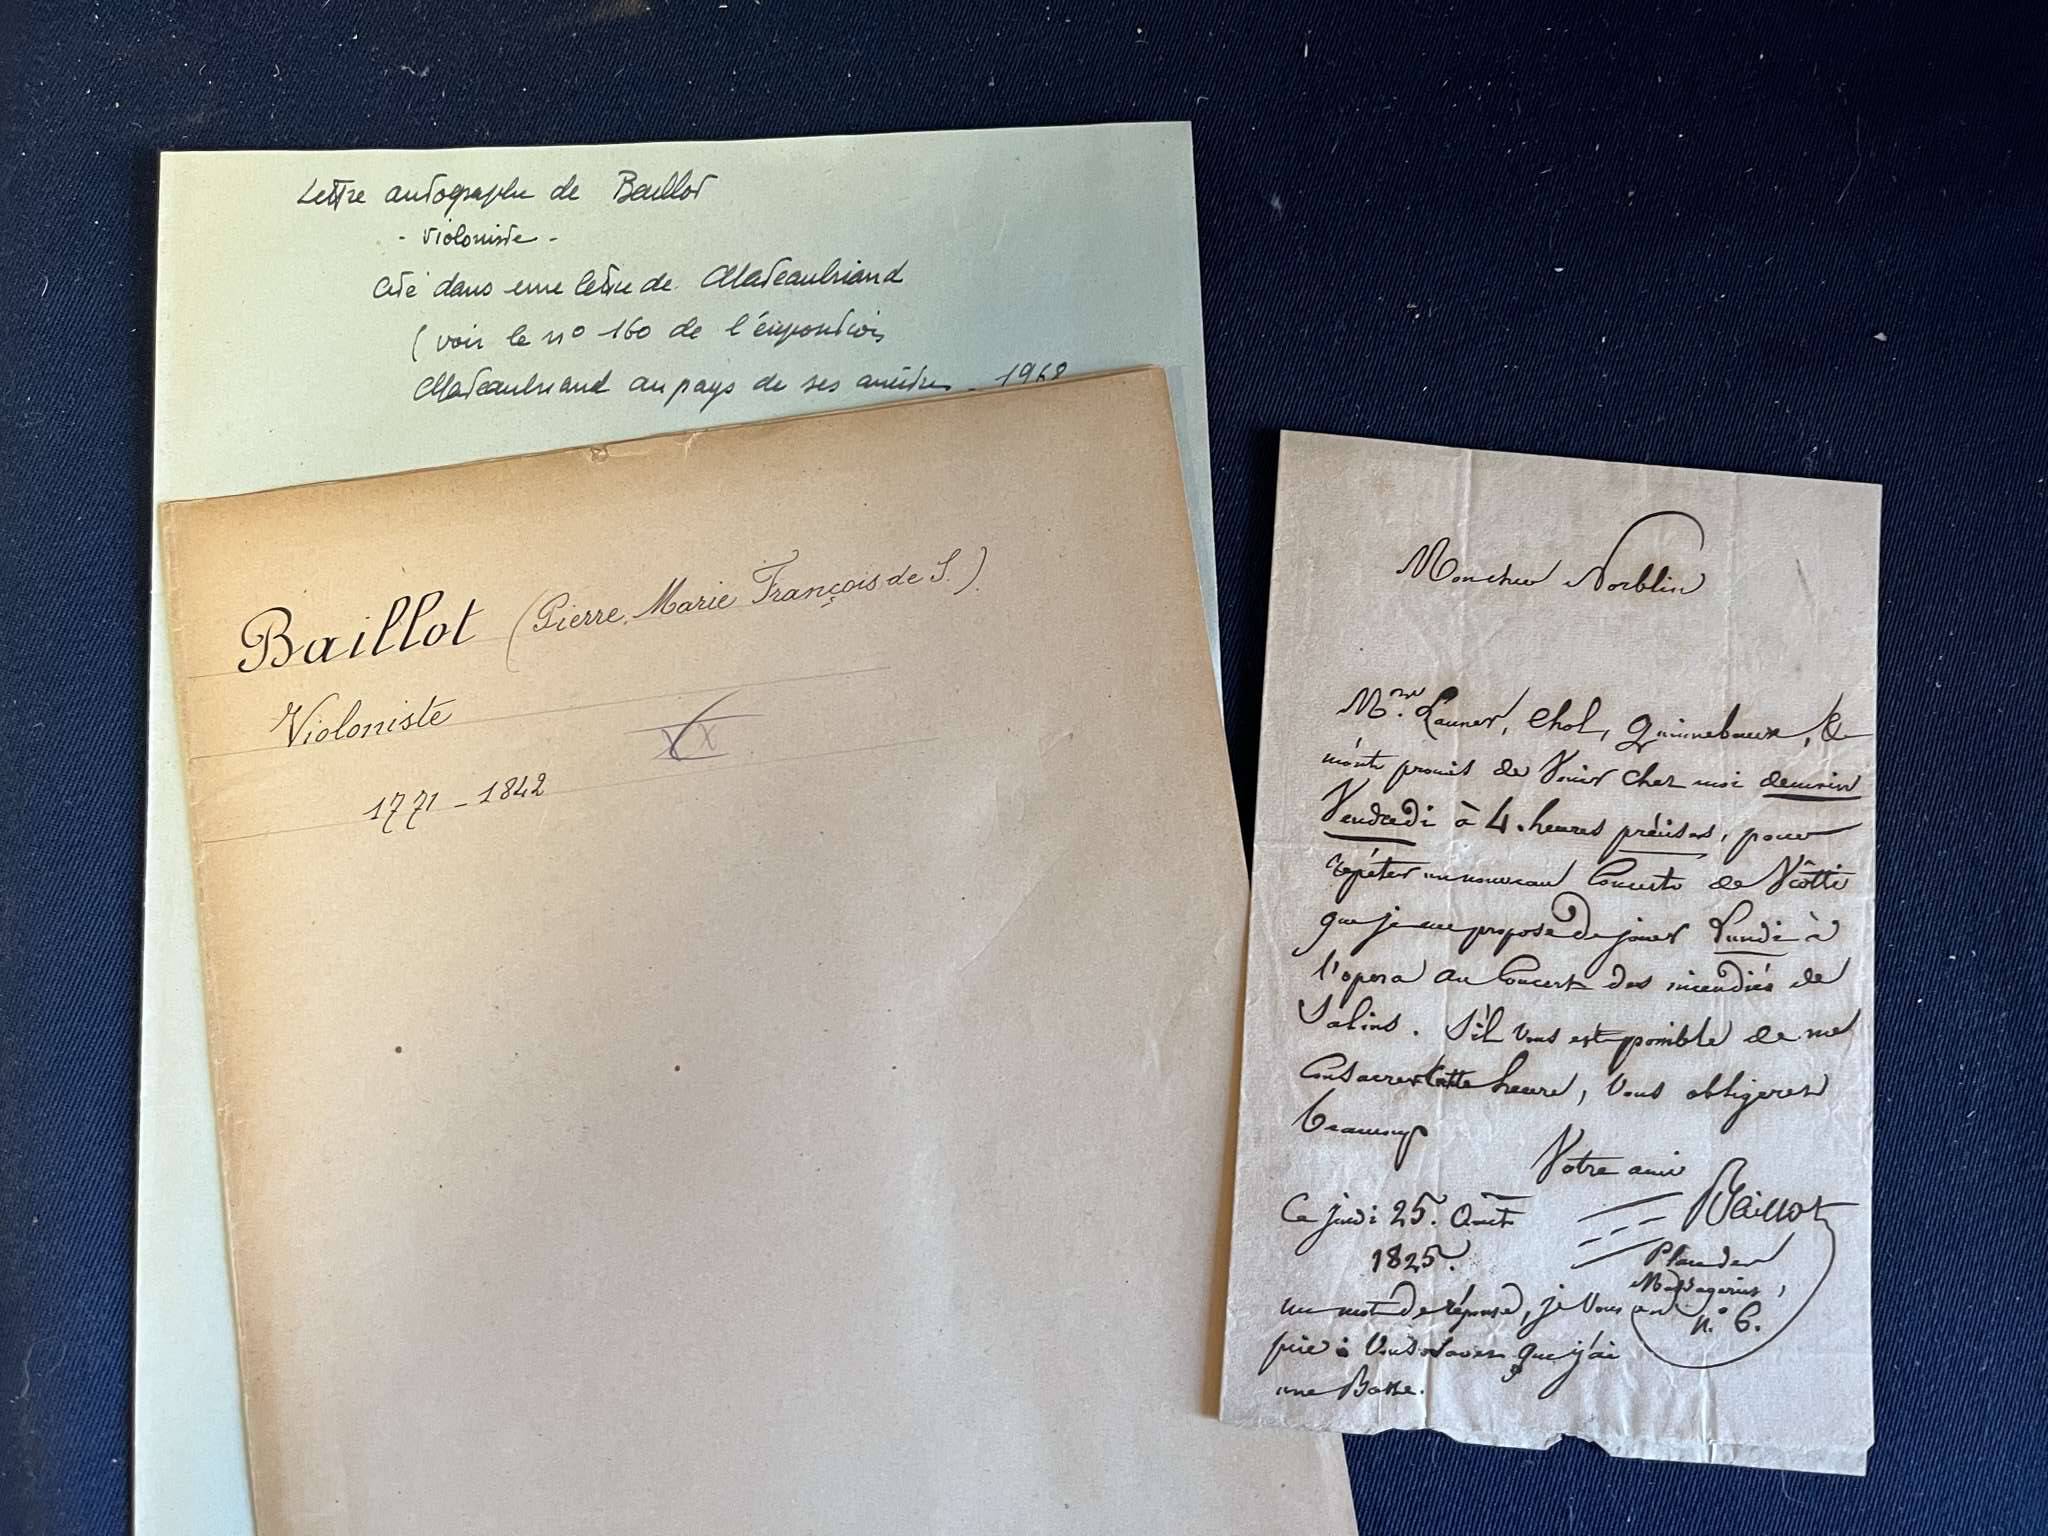 Lettre autographe de Baillot
- violoniste -
Cité dans une lettre de Chateaubriand
(voir le n° 160 de l'exposition
Chateaubriand au pays de ses ancêtres - 1968
Baillot (Pierre, Marie François de S.)
Violoniste
1771 - 1842
Mon cher Norblin
Mrs. Launer, Chol, &
m'ont promis de Venir chez moi demain
Vendredi à 4. heures précises, pour
répéter un nouveau Concerto de Viotti
que je me propose de jouer Lundi à
l'opera au Concert des incendiés de
Salins. S'il vous est possible de me
Consacrer Cette heure, Vous obligerez
beaucoup
Votre ami
Baillot
Place des
Messageries,
n.° 6.
Ce jeudi 25. Août
1825.
un mot de réponse, je Vous en
prie : Vous Savez que j'ai
une Basse.